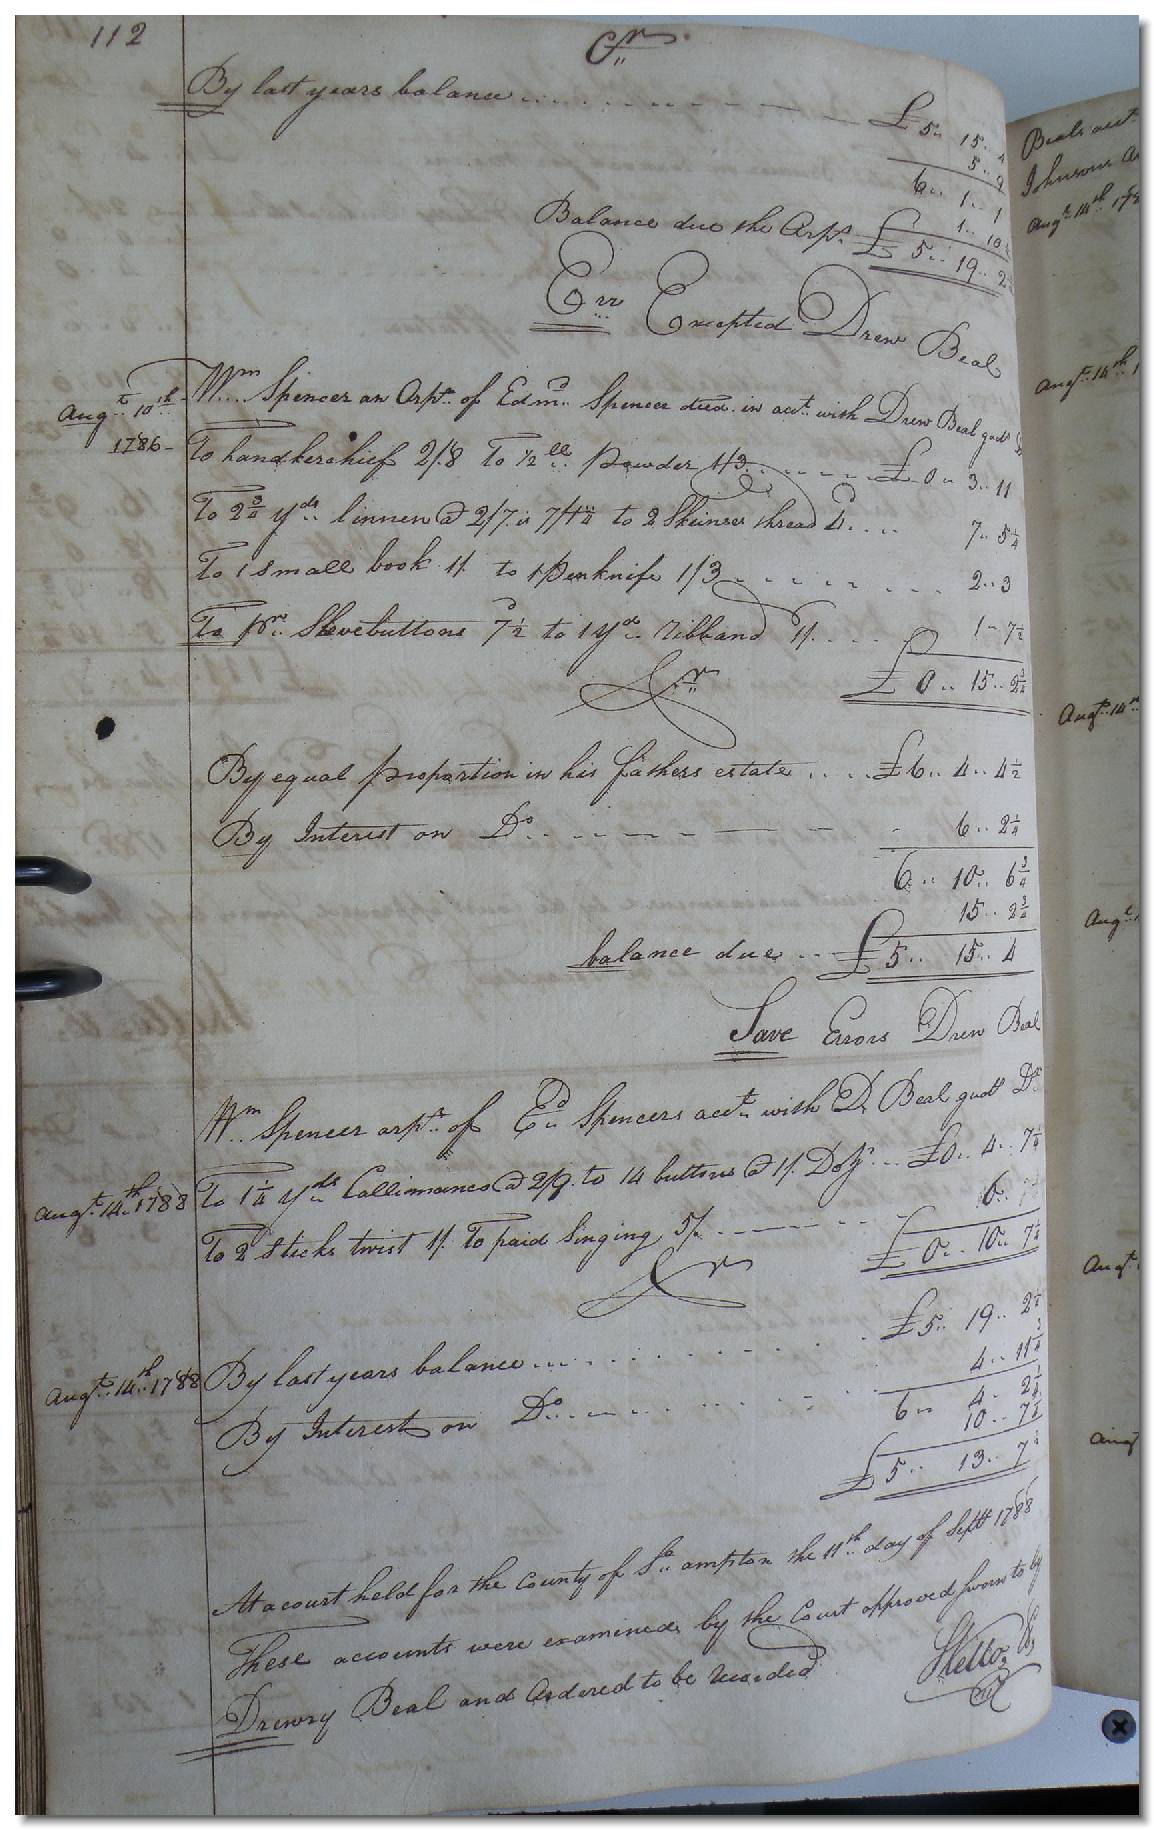 112
Cr.
By last years balance ... £ 5.. 15.. 4
5.. 9
6.. 1.. 1
1.. 10
Balance due the Orpn. £ 5.. 19.. 2
Err Excepted Drew Beal
Augt. 10th. Wm. Spencer an Orpn. of Edmd. Spencer decd. in acct. with Drew Beal gudn
1786- To handkerchief 2/8 To ½ ll. powder 1/3 ... £ 0.. 3.. 11
To 2¾ yds. linnen @ 2/7 is 7/1¼ to 2 Skeines thread 4d ... 7.. 5¼
To 1 small book 1/. to 1 penknife 1/3 ... 2.. 3
To pr. Slevebuttons 7½d to 1 yd. ribband 1/. ... 1.. 7½
£ 0.. 15.. 2¾
Cr.
By equal proportion in his fathers estate ... £6.. 4.. 4½
By Interest on Do. ... 6.. 2¼
6.. 10.. 6¾
15.. 2¾
balance due .. £ 5.. 15.. 4
Save Errors Drew Beal
Wm. Spencer orpn. of Ed. Spencers acct. with D. Beal gudn Dr
Augt. 14th. 1788 To 1¼ yds. Callimanco @ 2/9. to 14 buttons @ 1/. Doz. ... £0.. 4.. 7¼
To 2 sticks twist 1/. To paid Singing 5/. ... 6..
£ 0.. 10.. 7¼
Cr
£5.. 19.. 2¼
Augt. 14th. 1788 By last years balance ... 4.. 11¾
By Interest on Do. ... 6.. 4.. 2¼
10.. 7¼
£ 5.. 13.. 7
At a court held for the County of So. ampton the 11th. day of Septr 1788
These accounts were examined by the Court approved sworn to by
Drewry Beal and Ordered to be recorded
Beals acct.
Johnsons
Augt. 14th. 178
Augt. 14th. 1
Augt. 14th.
Augt.
Augt.
Augt